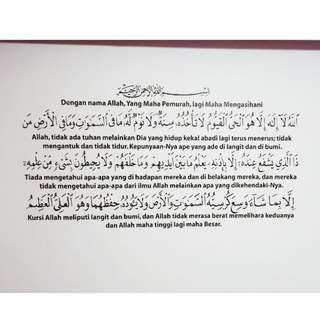 بِسْمِ اللَّهِ الرَّحْمَٰنِ الرَّحِيمِ
Dengan nama Allah, Yang Maha Pemurah, lagi Maha Mengasihani
اللَّهُ لَا إِلَٰهَ إِلَّا هُوَ الْحَيُّ الْقَيُّومُ لَا تَأْخُذُهُ سِنَةٌ وَلَا نَوْمٌ لَهُ مَا فِي السَّمَٰوَٰتِ وَمَا فِي الْأَرْضِ مَنْ
Allah, tidak ada tuhan melainkan Dia yang hidup kekal abadi lagi terus menerus; tidak
mengantuk dan tidak tidur. Kepunyaan-Nya ape yang ada di langit dan di bumi.
ذَا الَّذِي يَشْفَعُ عِنْدَهُ إِلَّا بِإِذْنِهِ يَعْلَمُ مَا بَيْنَ أَيْدِيهِمْ وَمَا خَلْفَهُمْ وَلَا يُحِيطُونَ بِشَيْءٍ مِنْ عِلْمِهِ
Tiada mengetahui apa-apa yang di hadapan mereka dan di belakang mereka, dan mereka
tidak mengetahui apa-apa dari ilmu Allah melainkan apa yang dikehendaki-Nya.
إِلَّا بِمَا شَاءَ وَسِعَ كُرْسِيُّهُ السَّمَٰوَٰتِ وَالْأَرْضَ وَلَا يَئُودُهُ حِفْظُهُمَا وَهُوَ الْعَلِيُّ الْعَظِيمُ
Kursi Allah meliputi langit dan bumi, dan Allah tidak merasa berat memelihara keduanya
dan Allah maha tinggi lagi maha Besar.